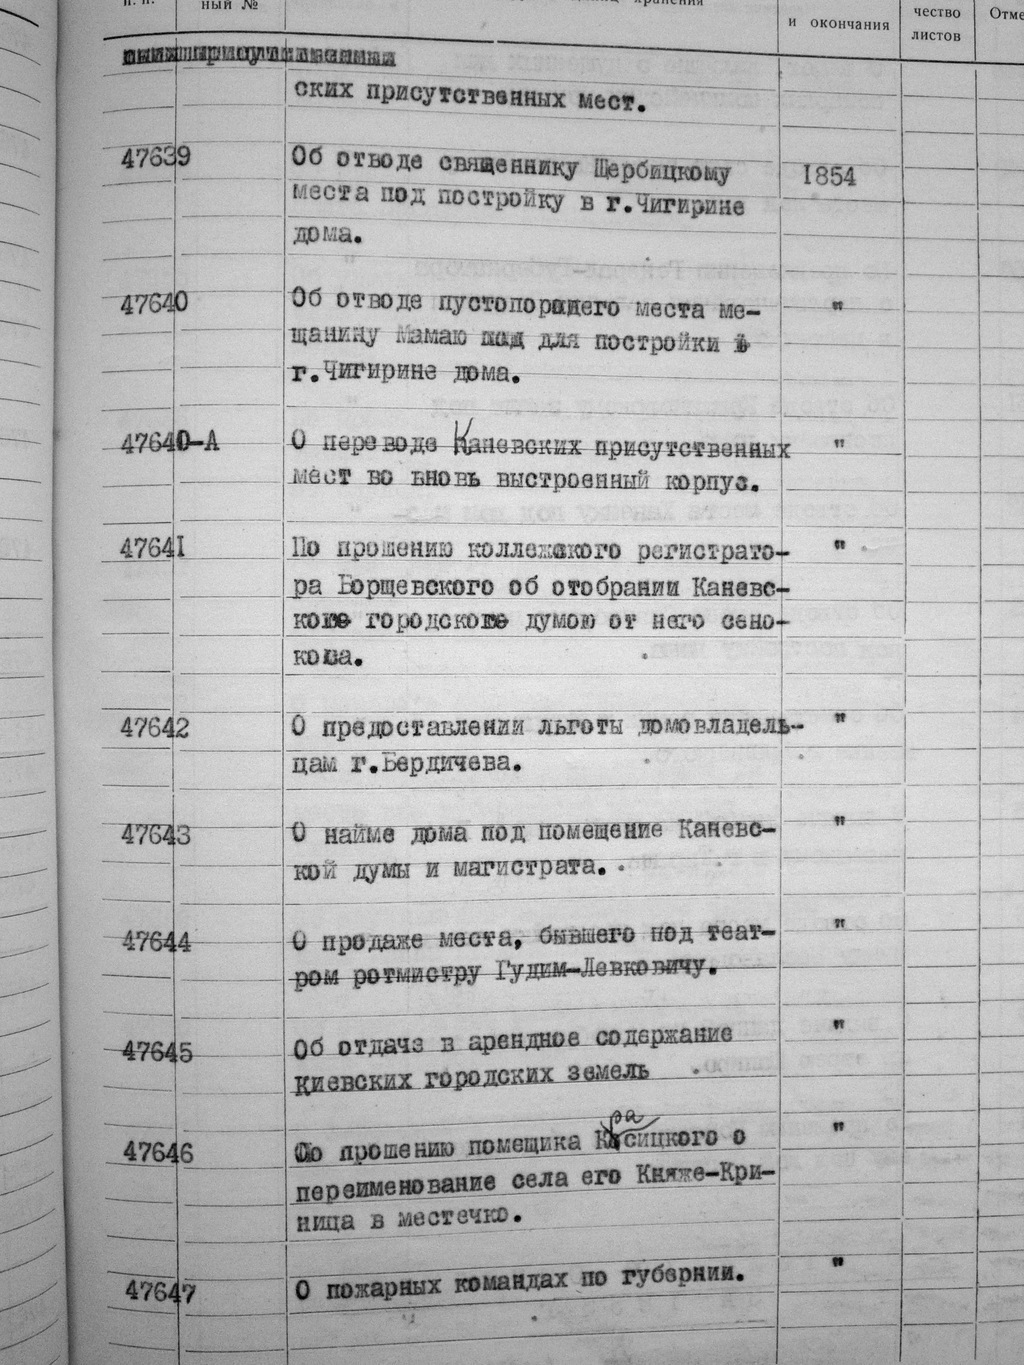 п. п.
ный №
хранения
и окончания
чество
листов
Отме
ских присутственных мест.
47639 Об отводе священнику Щербицкому 1854
места под постройку в г.Чигирине
дома.
47640 Об отводе пустопорожнего места ме- "
щанину Мамаю для постройки в
г.Чигирине дома.
47640-А О переводе Каневских присутственных "
мест во вновь выстроенный корпус.
47641 По прошению коллежского регистрато- "
ра Борщевского об отобрании Каневс-
кою городскою думою от него сено-
коса.
47642 О предоставлении льготы домовладель- "
цам г.Бердичева.
47643 О найме дома под помещение Каневс- "
кой думы и магистрата.
47644 О продаже места, бывшего под теат- "
ром ротмистру Гудим-Левковичу.
47645 Об отдаче в арендное содержание "
Киевских городских земель
47646 По прошению помещика Красицкого о "
переименование села его Княже-Кри-
ница в местечко.
47647 О пожарных командах по губернии. "